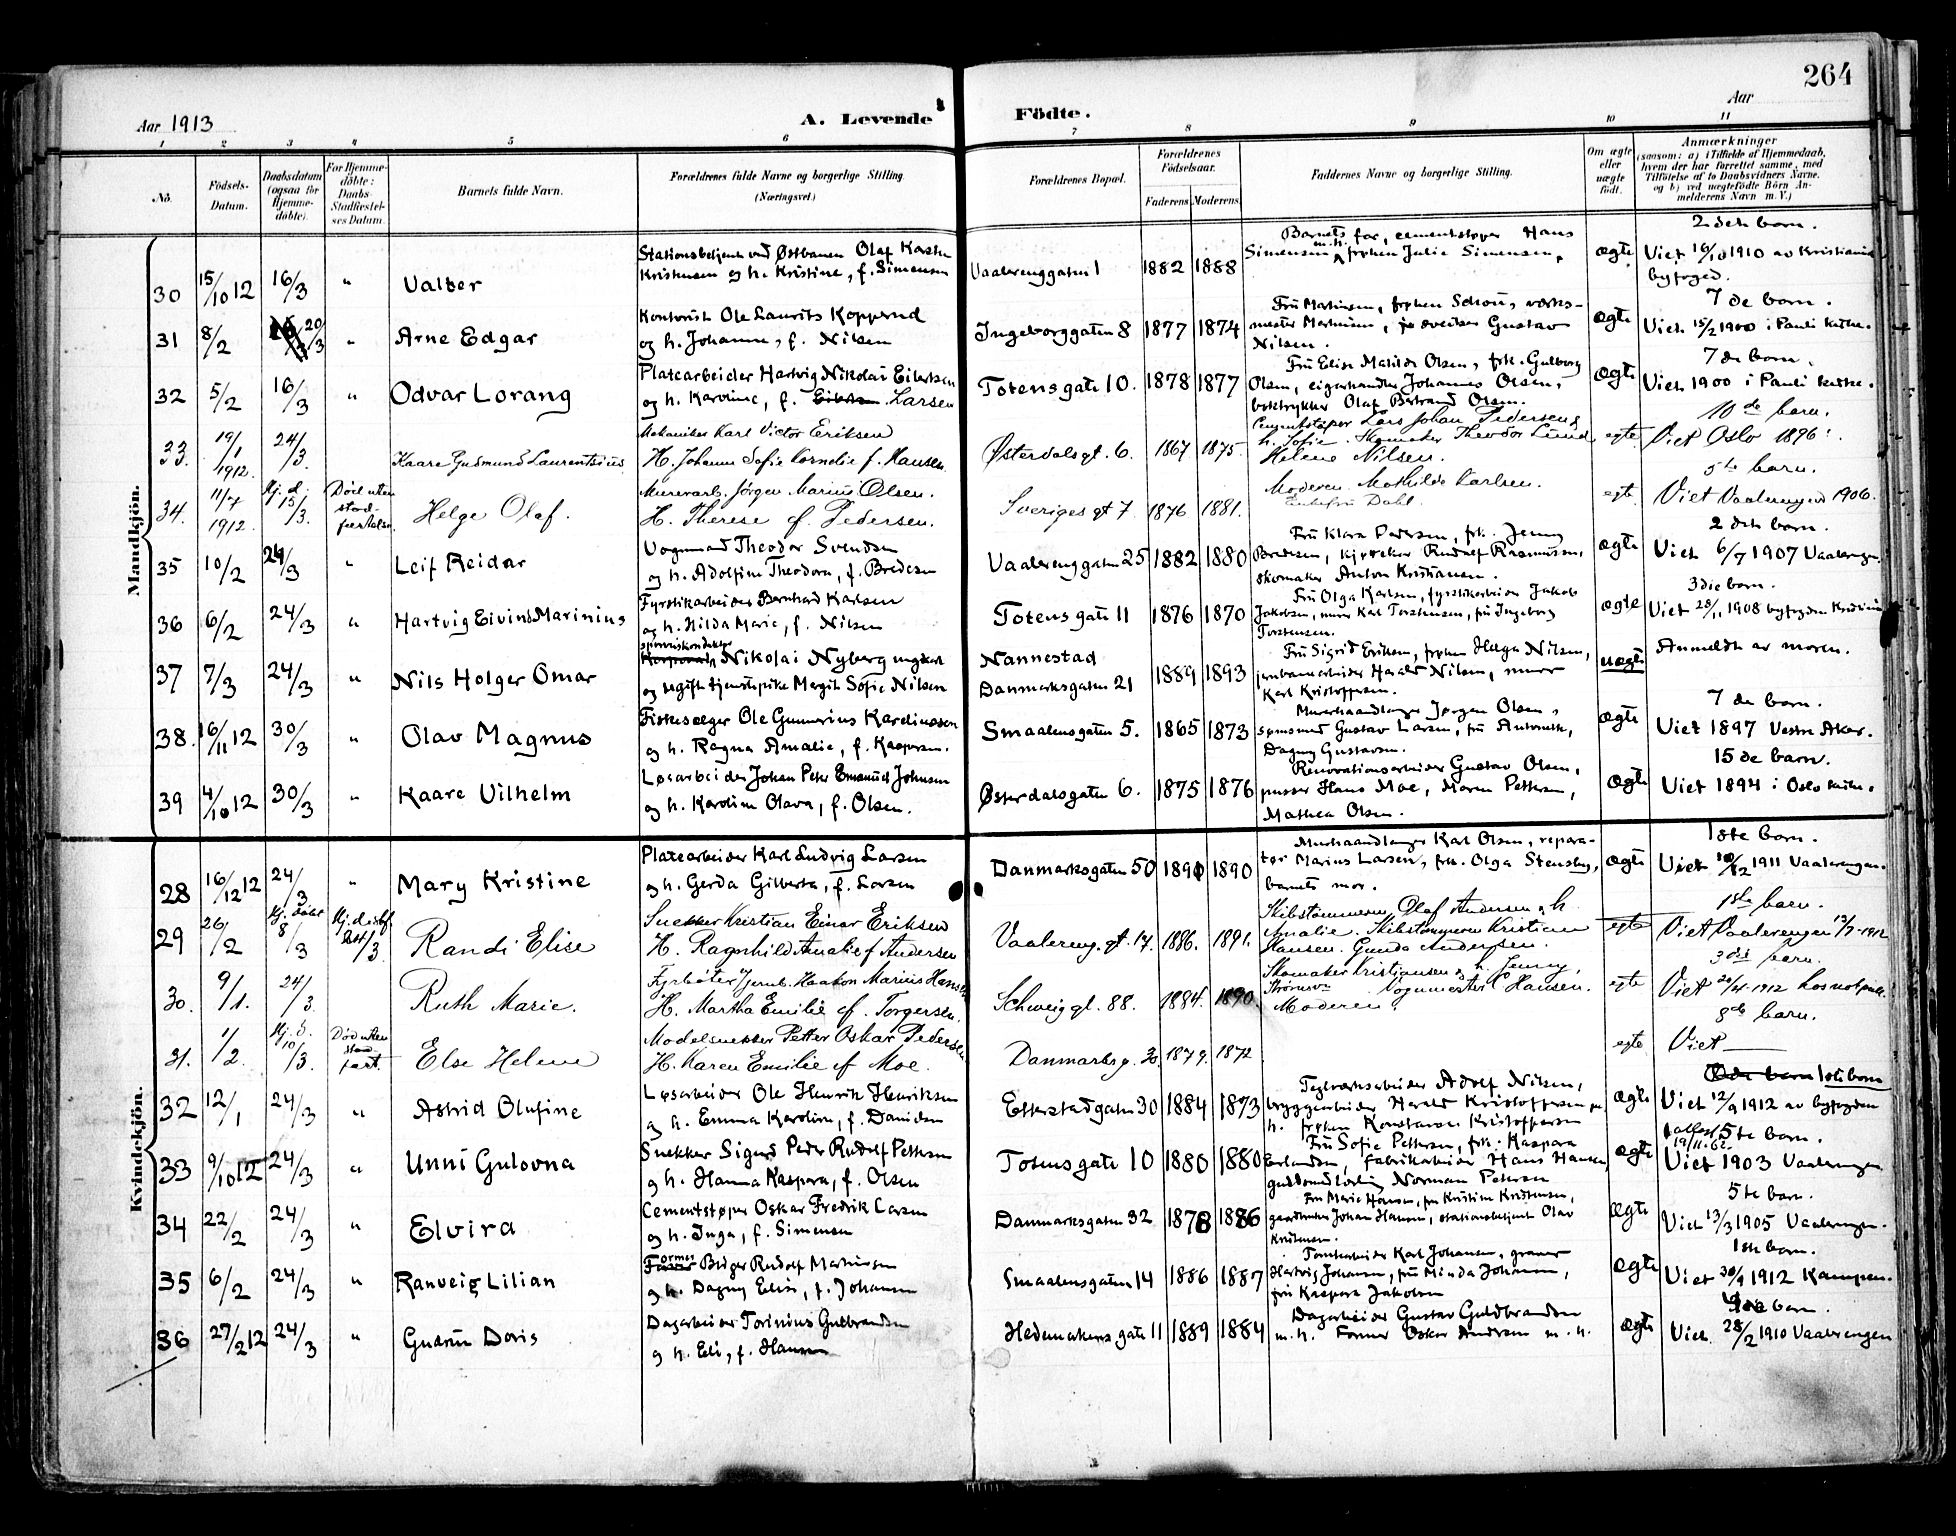 264
Aar 1913
A. Levende
Födte.
Aar
1 2 3 4 5 6 7 8 9 10 11
No.
Födsels-Datum.
Daabsdatum (ogsaa for Hjemme-döbte).
For Hjemme-döbte: Daabs-Stadfæstel-ses Datum.
Barnets fulde Navn.
Forældrenes fulde Navne og borgerlige Stilling.
(Næringsvei.)
Forældrenes Bopæl.
Forældrenes Födselsaar.
Faderens Moderens
Faddernes Navne og borgerlige Stilling.
Om ægte eller uægte födt.
Anmærkninger
(saasom: a) i Tilfælde af Hjemmedaab, hvem der har forrettet samme, med Tilföielse af to Daabsvidners Navne, og b) ved uægtefödte Börn An-melderens Navn m. V.)
Mandkjön.
30 15/10 12 16/3 " Valter
Stationsbetjent ved Østbanen Olaf Karsten
Kristensen og h. Kristine, f. Simensen
Vaalerenggaten 1 1882 1888
Barnets far, cementstøper Hans
Simensen m.h., frøken Julie Simensen.
ægte
2det barn.
Viet 16/10 1910 av Kristiania
byfoged.
31 8/2 20/3 " Arne Edgar
Kontorist Ole Laurits Kopperud
og h. Johanne, f. Nilsen
Ingeborggaten 8 1877 1874
Fru Martinsen, frøken Schou, verks-
mester Martinsen, Gustav
Nilsen.
ægte
7de barn.
Viet 15/2 1900 i Pauli kirke.
32 5/2 16/3 " Odvar Lorang
Platearbeider Hartvig Nikolai Eilertsen
og h. Karoline, f. Larsen
Totensgate 10. 1878 1877
Fru Elise Matilde Olsen, frk. Gulborg
Olsen, cigarhandler Johannes Olsen,
boktrykker Olaf Bertrand Olsen.
ægte
7de barn.
Viet 1900 i Pauli kirke.
33. 19/1 1912. 24/3. Kaare Gudmund Laurentsius
Mekaniker Karl Victor Eriksen
H. Johanne Sofie Kornelie f. Hansen.
Østerdalsgt. 6. 1867 1875.
Cementstøper Lars Johan Pedersen og
h. Sofie. Skomaker Theodor Lund
Helene Nilsen.
egte
10de barn.
Viet Oslo 1896.
34. 11/7 1912. Hj. d. 15/3. Død uten
stad-
fæstelse.
Helge Olaf.
Murerarb. Jørgen Marius Olsen.
H. Therese f. Pedersen.
Sveriges gt 7. 1876 1881.
Moderen. Mathilde Karlsen.
Enkefru Dahl.
egte
5te barn.
Viet Vaalerengen 1906.
35 10/2 24/3 " Leif Reidar
Vognmand Theodor Svendsen
og h. Adolfine Theodora, f. Bredesen
Vaalerenggaten 25 1882 1880
Fru Klara Pedersen, frk. Jenny
Bredesen, Rudolf Rasmussen,
skomaker Anton Kristiansen.
ægte
2det barn.
Viet 6/7 1907 Vaalerengen.
36 6/2 24/3 " Hartvig Eivind Marinius
Fyrstikarbeider Bernhard Karlsen
og h. Hilda Marie, f. Nilsen
Totensgate 11 1876 1870
Fru Olga Karlsen, fyrstikarbeider Jakob
Jakobsen, murer Karl Torstensen, fru Ingeborg
Torstensen.
ægte
3die barn.
Viet 28/11 1908 byfogden Kristiania
37 7/3 24/3 " Nils Holger Omar
Nikolai Nyberg ungkarl
og ugift tjenestepike Margit Sofie Nilsen
Nannestad
Danmarksgaten 21 1889 1893
Fru Sigrid Eriksen, frøken Helga Nilsen,
jernbanearbeider Harald Nilsen, murer
Karl Kristoffersen.
uægte
Anmeldt av moren.
38. 16/11 12 30/3 " Olav Magnus
Fiskesælger Ole Gunnerius Karelinssen
og h. Ragna Amalie, f. Kaspersen.
Smaalensgaten 5. 1865 1873
Murerhaandlanger Jørgen Olsen,
Gustav Larsen, fru Antonette,
Dagny Gustavsen.
ægte
7de barn.
Viet 1897 Vestre Aker.
39 4/10 12 30/3 " Kaare Vilhelm
Løsarbeider Johan Peter Emanuel Johnsen
og h. Karoline Olava, f. Olsen.
Østerdalsgaten 6. 1875 1876
Renovationsarbeider Gustav Olsen,
pusser Hans Moe, Maren Pettersen,
Mathea Olsen.
ægte
15de barn.
Viet 1894 i Oslo kirke.
Kvindekjön.
28 16/12 12 24/3 " Mary Kristine
Platearbeider Karl Ludvig Larsen
og h. Gerda Gilberta, f. Larsen
Danmarksgaten 50 1890 1890
Murhaandlanger Karl Olsen, repara-
tør Marius Larsen, frk. Olga Stensby,
barnets mor.
ægte
1ste barn.
Viet 1911 Vaalerengen.
29 26/2 Hj. døbt 8/3 Hj.d. stf 24/3 Randi Elise
Snekker Kristian Einar Eriksen
H. Ragnhild Amalie f Andersen
Vaalereng. gt. 17. 1886. 1891.
Skibstømmerm. Olaf Andersen og h.
Amalie. Skibstømmerm Kristian
Hansen. Gunda Andersen.
egte
1ste barn.
Viet Vaalerengen 1912
30. 9/1. 24/3. Ruth Marie.
Fyrbøter v/jernb. Haakon Marius Hansen
H. Martha Emilie f. Torgersen.
Schweig. gt. 88. 1884. 1890.
Skomaker Kristiansen og h. Jenny.
Vognmester Hansen.
Moderen.
egte
3die barn.
Viet 20/4 1912 hos not. publ.
31. 1/2. Hj. d. 10/3. Død uten
stad
fæst.
Else Helene
Modelsnekker Petter Oskar Pedersen
H. Karen Emilie f Moe.
Danmarksg. 30 1879. 1872
egte
8de barn.
Viet —
32 12/1 24/3 " Astrid Olufine
Løsarbeider Ole Henrik Henriksen
og h. Emma Karoline, f. Danielsen
Etterstadgaten 30 1884 1873
Teglverksarbeider Adolf Nilsen,
bryggearbeider Harald Kristoffersen og
h. frøken Konstanse Kristoffersen
ægte
1ste barn
Viet 12/9 1912 av byfogden
33 9/10 12 24/3 " Unni Gulovna
Snekker Sigurd Peder Rudolf Pettersen
og h. Hanna Kaspara, f. Olsen
Totensgate 10 1880 1880
Fru Sofie Pettersen, frk. Kaspara
Erlandsen, fabrikarbeider Hans Hansen
guldsmedlærling Norman Petersen
ægte
19/11-62
5te barn.
Viet 1903 Vaalerengen
34 22/2 24/3 " Elvira
Cementstøper Oskar Fredrik Larsen
og h. Inga, f. Simensen
Danmarksgaten 32 1878 1886
Fru Marie Hansen, fru Kristine Kristensen,
Johan Hansen, stationsbetjent Olav
Kristensen.
ægte
5te barn.
Viet 13/3 1905 Vaalerengen.
35 6/2 24/3 " Ranveig Lilian
Former Birger Rudolf Martinsen
og h. Dagny Elise, f. Johansen
Smaalensgaten 14 1886 1887
Tomtearbeider Karl Johansen, gravør
Hartvig Johansen, fru Minda Johansen,
fru Kaspara Jakobsen
ægte
1ste barn.
Viet 30/9 1912 Kampen.
36 27/2 12 24/3 " Gudrun Doris
Dagarbeider Torinius Gulbrandsen
og h. Eli, f. Hansen
Hedemarkens gate 11 1889 1884
Dagarbeider Gustav Guldbrandsen
m. h. Former Oskar Andersen m. h.
ægte
barn.
Viet 28/2 1910 Vaalerengen